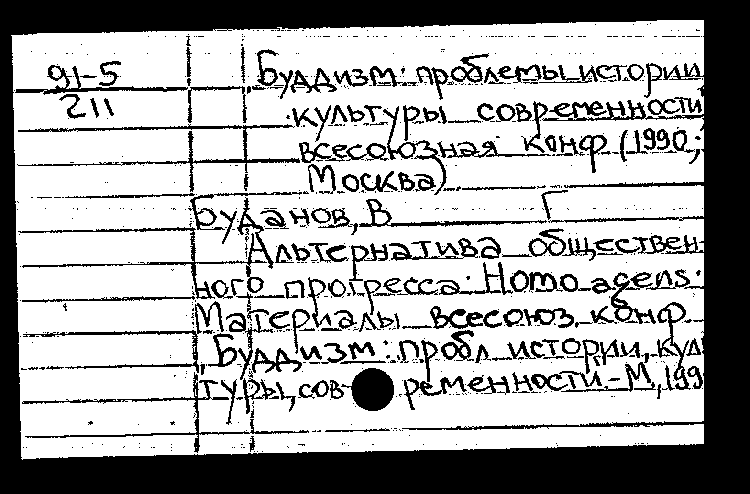 91-5
211
Буддизм: проблемы истории
культуры современности
всесоюзная конф (1990;
Москва)
Буданов, В Г
Альтернатива обществен-
ного прогресса: Homo agens:
Материалы всесоюз. конф.
"Буддизм: пробл истории, кул
туры, сов- ременности".-М, 199